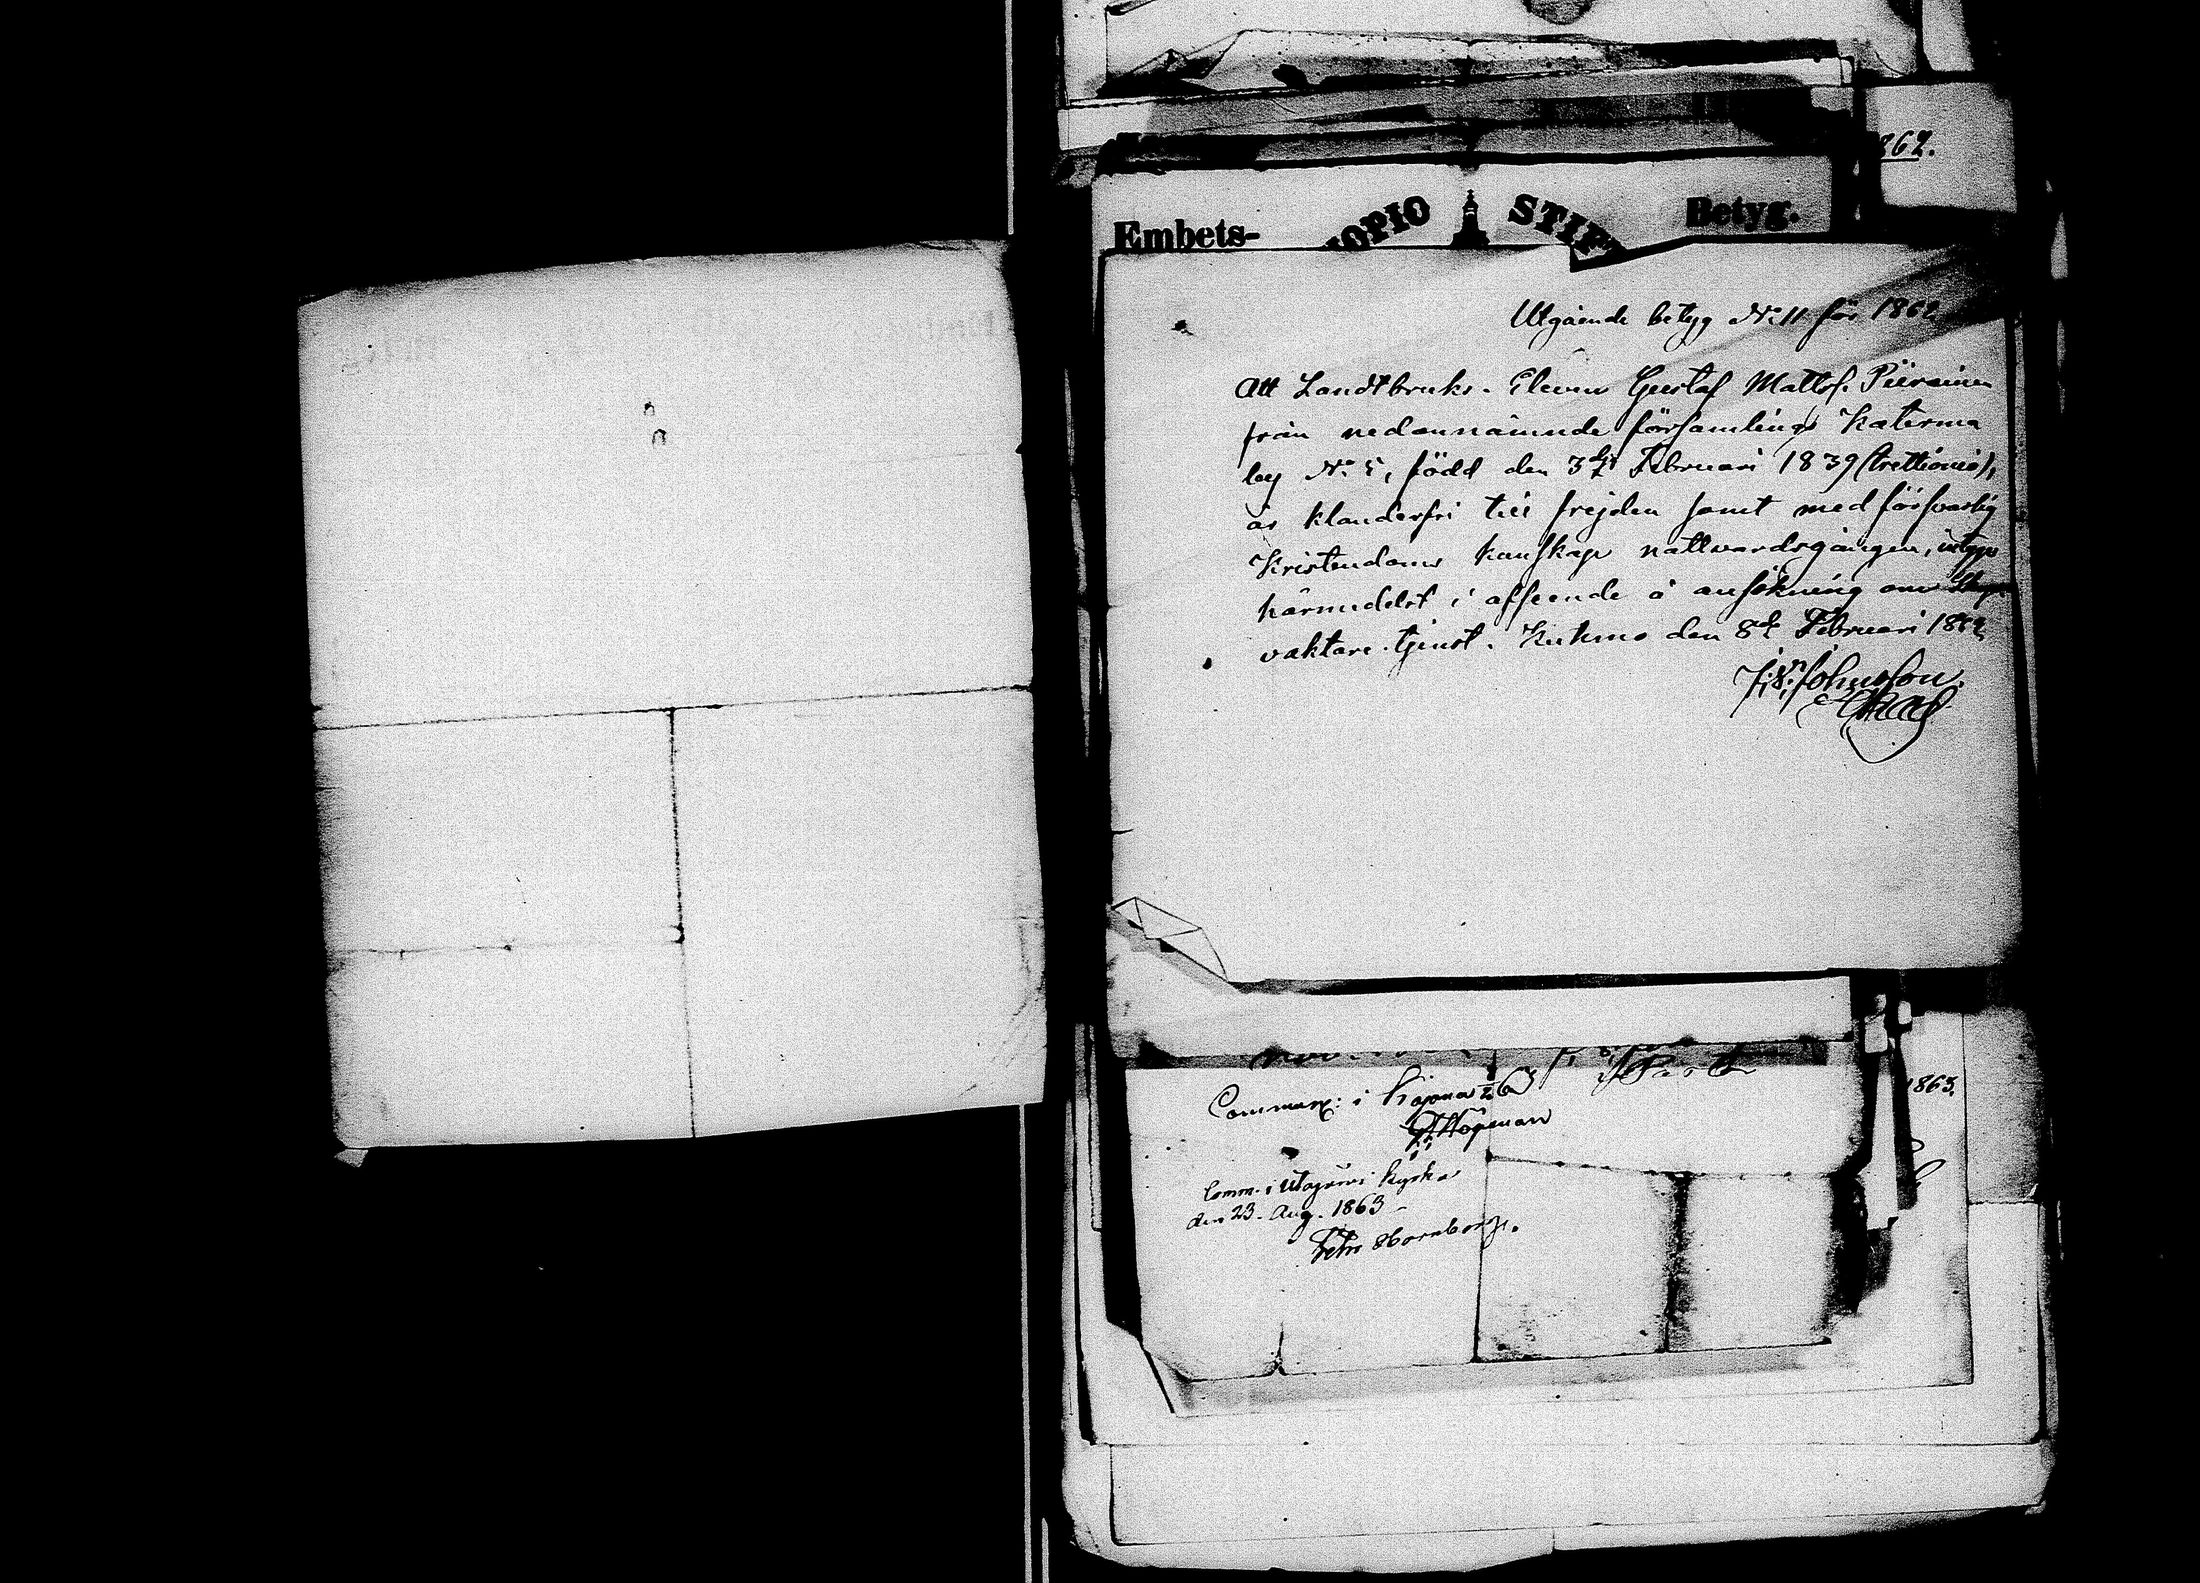 262.
Embets- OPIO STIFT Betyg.
Utgående betyg No 11 för 1862
Att Landtbruks-Eleven Gustaf Mattss. Piirainen
från nedannämnde församlings Katerma
by No 5, född den 3dje Februari 1839 (trettionio),
är klanderfri till frejden samt med försvarlig
Kristendoms kunskap nattvardsgången, intygas
härmedelst i afseende å ansökning om Skogs-
vaktare-tjenst. Kuhmo den 8de Februari 1862
Johnsson.
Commun: i Kajana
Högman
1863.
Comm. i Utajärvi kyrka
den 23. Aug. 1863 -
Petr Stornborg.